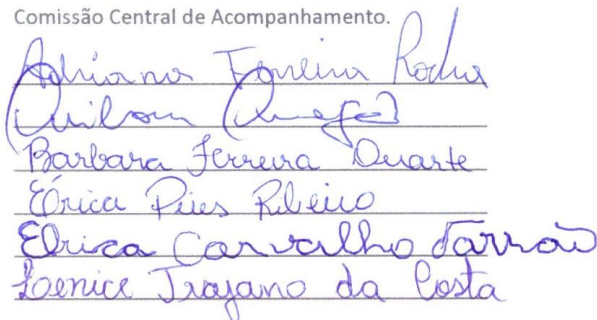 Comissão Central de Acompanhamento.
Adriana Ferreira Rocha
Barbara Ferreira Duarte
Érica Pires Ribeiro
Elrica Carvalho
Lenice Trajano da Costa